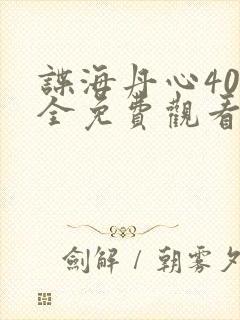 諜海丹心40
全免費觀看
劍解 / 朝雾夕